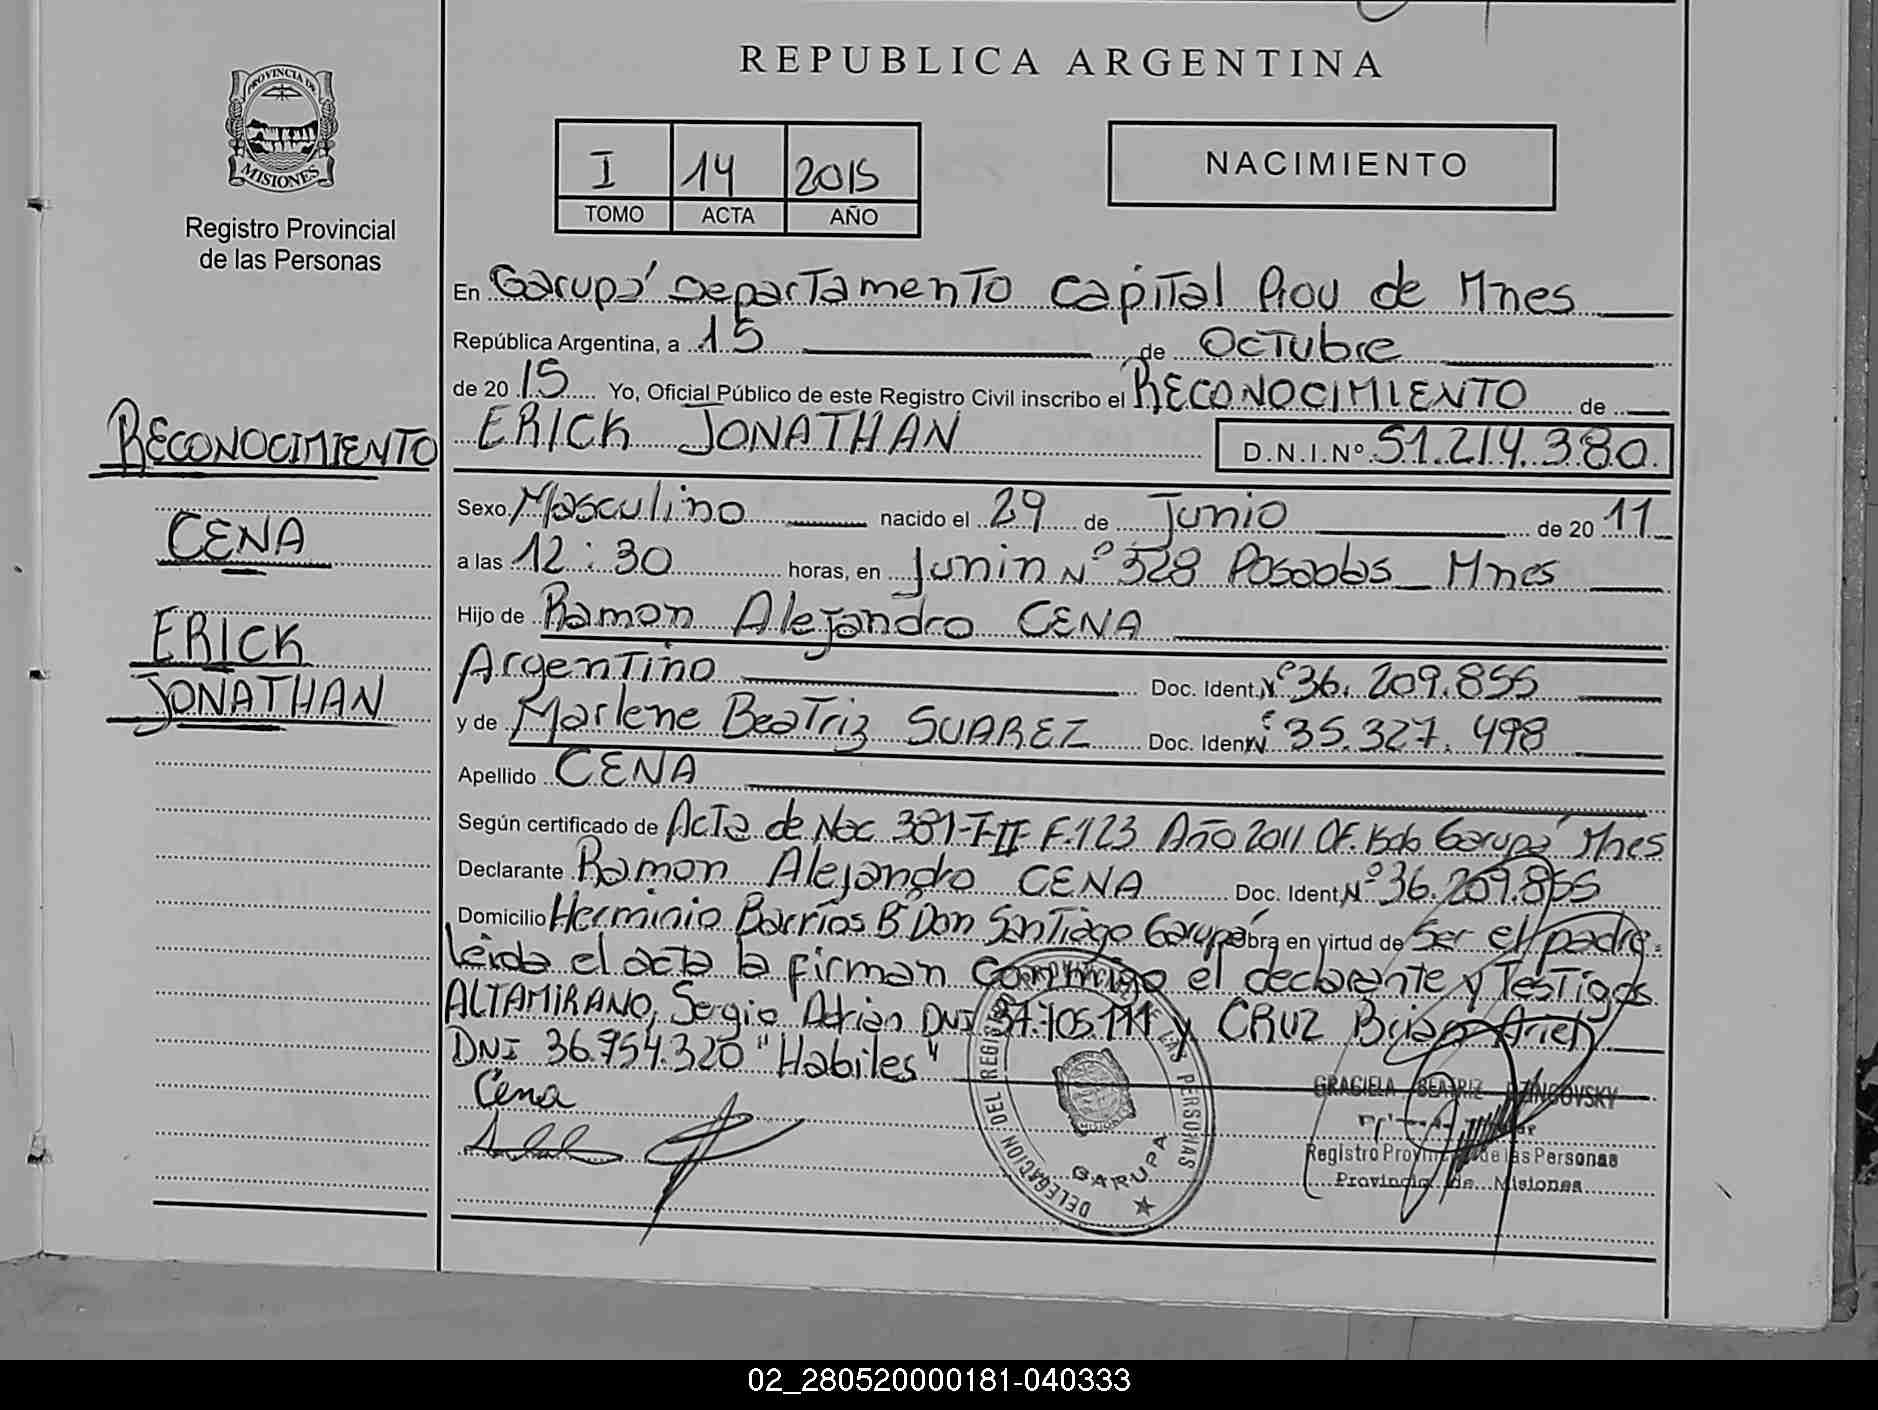 REPUBLICA ARGENTINA
PROVINCIA DE
MISIONES
Registro Provincial
de las Personas
I 14 2015
TOMO ACTA AÑO
NACIMIENTO
En Garupá Departamento Capital Prov de Mnes
República Argentina, a 15 de Octubre
de 20 15 Yo, Oficial Público de este Registro Civil inscribo el RECONOCIMIENTO de
ERICK JONATHAN D.N.I.Nº 51.214.380
RECONOCIMIENTO
CENA
ERICK
JONATHAN
Sexo Masculino nacido el 29 de Junio de 20 11
a las 12:30 horas, en Junin Nº 328 Posadas Mnes
Hijo de Ramon Alejandro CENA
Argentino Doc. Ident. Nº 36.209.855
y de Marlene Beatriz SUAREZ Doc. Ident Nº 35.327.498
Apellido CENA
Según certificado de Acta de Nac 381-T-II F.123 Año 2011 OF. Garupá Mnes
Declarante Ramon Alejandro CENA Doc. Ident Nº 36.209.855
Domicilio Herminio Barrios Bº Don Santiago Garupá obra en virtud de Ser el padre.
Leida el acta la firman conmigo el declarante y Testigos
ALTAMIRANO, Sergio Adrian DNI 37.705.111 y CRUZ Brian Ariel
DNI 36.954.320 "Habiles"
Cena
DELEGACION DEL REGISTRO DE LAS PERSONAS
GARUPA
GRACIELA BEATRIZ
Registro Provincial de las Personas
Provincia de Misiones
02_280520000181-040333